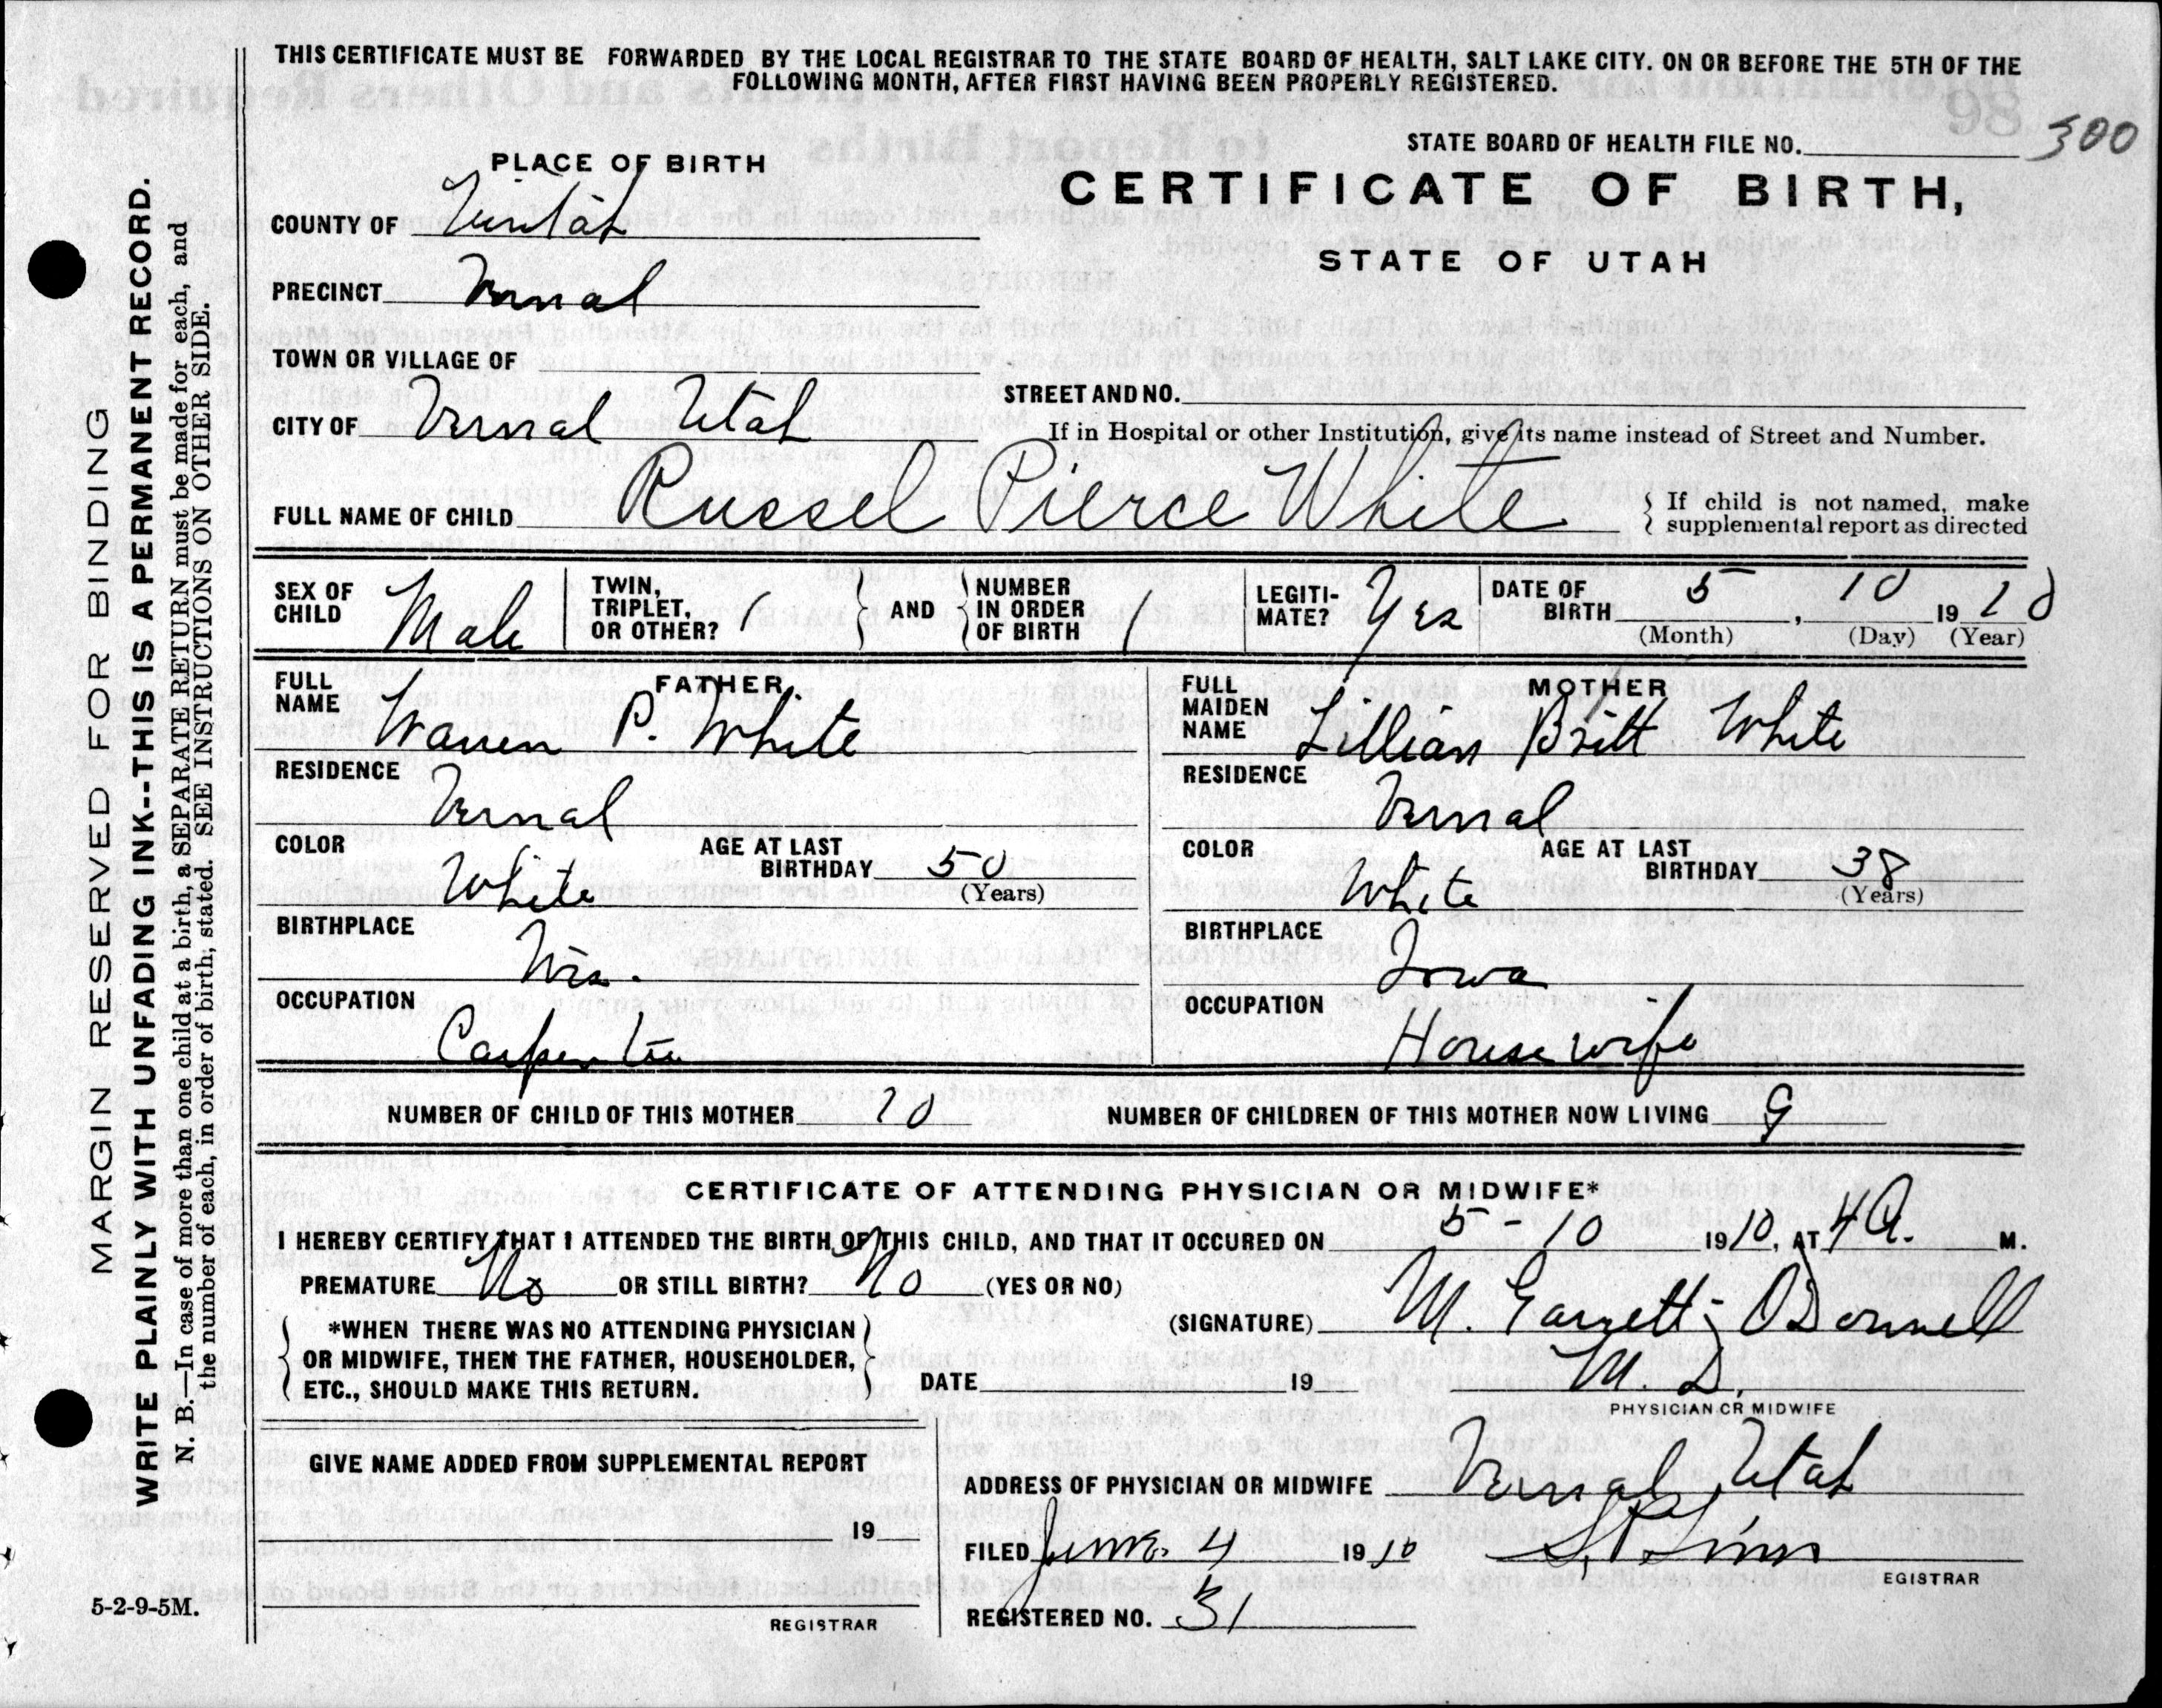 THIS CERTIFICATE MUST BE FORWARDED BY THE LOCAL REGISTRAR TO THE STATE BOARD OF HEALTH, SALT LAKE CITY. ON OR BEFORE THE 5TH OF THE
FOLLOWING MONTH, AFTER FIRST HAVING BEEN PROPERLY REGISTERED.
STATE BOARD OF HEALTH FILE NO. 300
PLACE OF BIRTH
CERTIFICATE OF BIRTH,
STATE OF UTAH
COUNTY OF Uintah
PRECINCT Vernal
TOWN OR VILLAGE OF
STREET AND NO.
CITY OF Vernal Utah
If in Hospital or other Institution, give its name instead of Street and Number.
FULL NAME OF CHILD Russel Pierce White
If child is not named, make
supplemental report as directed
SEX OF CHILD Male
TWIN, TRIPLET, OR OTHER? 1
AND
NUMBER IN ORDER OF BIRTH 1
LEGITI- MATE? Yes
DATE OF BIRTH 5, 10 1910
(Month) (Day) (Year)
FATHER
FULL NAME Warren P. White
RESIDENCE Vernal
COLOR White
AGE AT LAST BIRTHDAY 50
(Years)
BIRTHPLACE Wis.
OCCUPATION Carpenter
MOTHER
FULL MAIDEN NAME Lillian Britt White
RESIDENCE Vernal
COLOR White
AGE AT LAST BIRTHDAY 38
(Years)
BIRTHPLACE Iowa
OCCUPATION Housewife
NUMBER OF CHILD OF THIS MOTHER 10 NUMBER OF CHILDREN OF THIS MOTHER NOW LIVING 9
CERTIFICATE OF ATTENDING PHYSICIAN OR MIDWIFE*
I HEREBY CERTIFY THAT I ATTENDED THE BIRTH OF THIS CHILD, AND THAT IT OCCURED ON 5-10 1910, AT 4 A. M.
PREMATURE No OR STILL BIRTH? No (YES OR NO)
*WHEN THERE WAS NO ATTENDING PHYSICIAN
OR MIDWIFE, THEN THE FATHER, HOUSEHOLDER,
ETC., SHOULD MAKE THIS RETURN.
(SIGNATURE) M. Garnett-O'Donnell
M. D.
DATE 19
PHYSICIAN OR MIDWIFE
GIVE NAME ADDED FROM SUPPLEMENTAL REPORT
19
REGISTRAR
ADDRESS OF PHYSICIAN OR MIDWIFE Vernal Utah
FILED June 4 1910
EGISTRAR
REGISTERED NO. 31
5-2-9-5M.
MARGIN RESERVED FOR BINDING
WRITE PLAINLY WITH UNFADING INK--THIS IS A PERMANENT RECORD.
N. B.—In case of more than one child at a birth, a SEPARATE RETURN must be made for each, and
the number of each, in order of birth, stated. SEE INSTRUCTIONS ON OTHER SIDE.